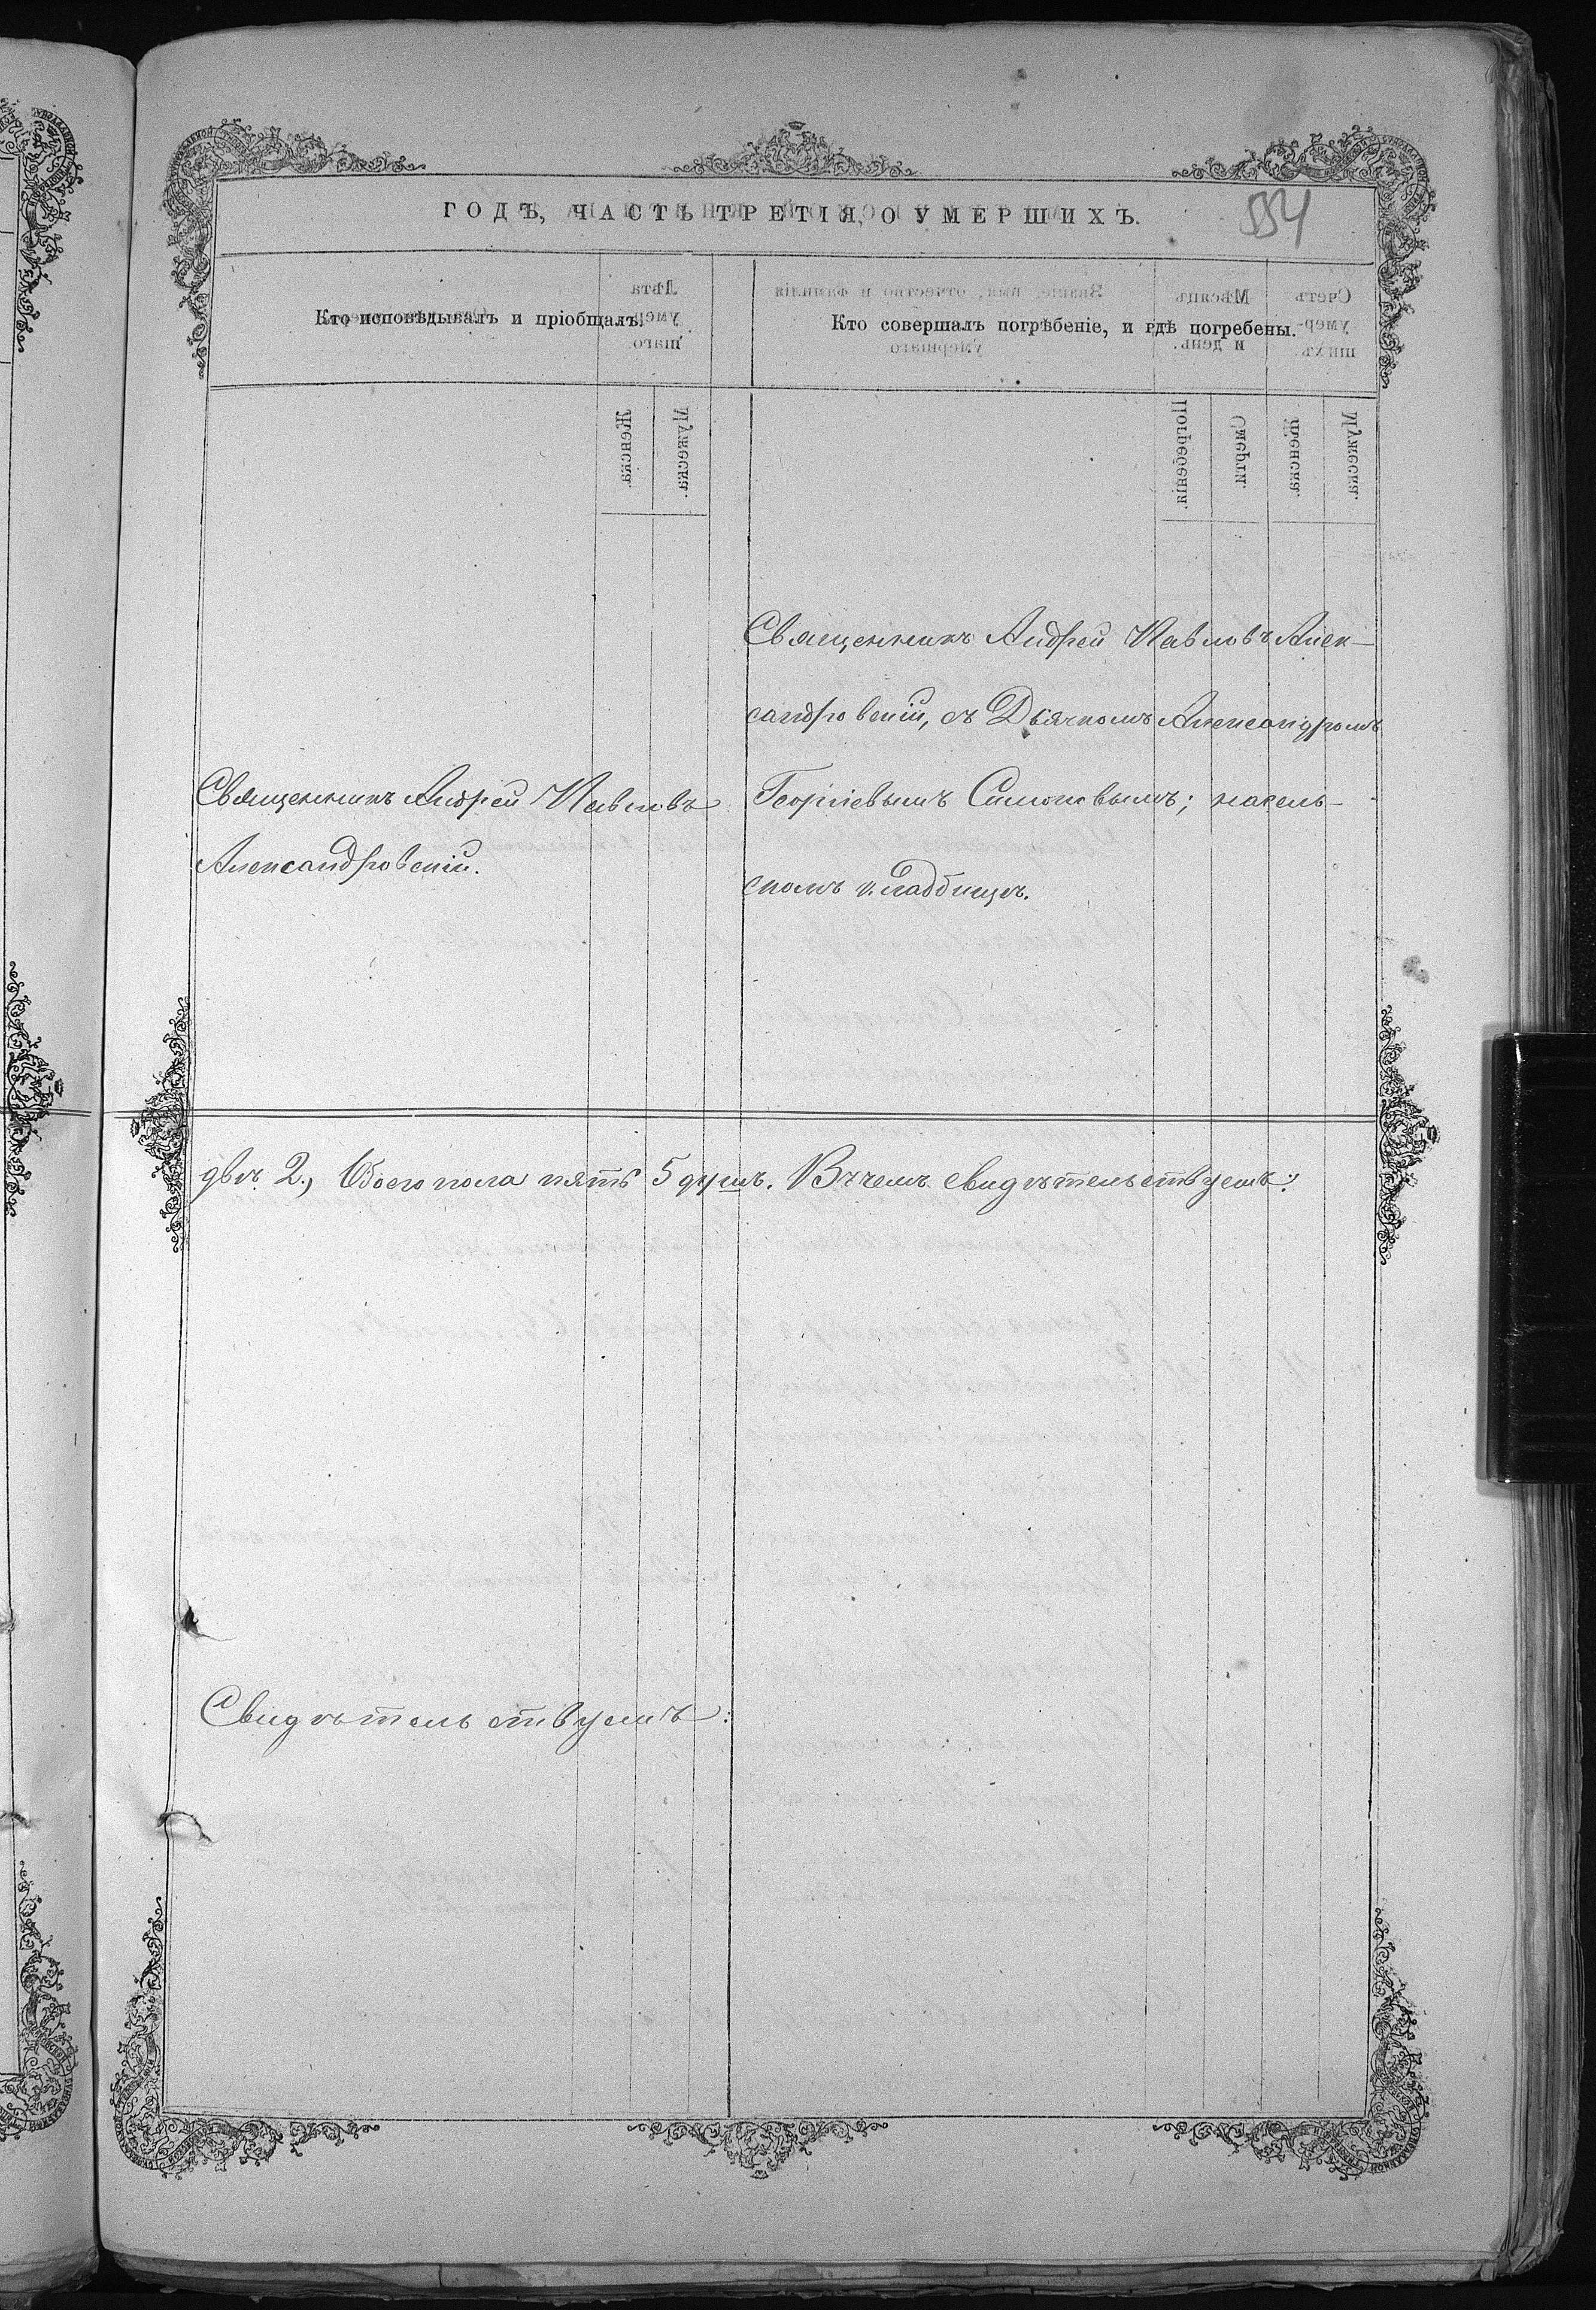 ГОДЪ, ЧАСТЬ ТРЕТІЯ, О УМЕРШИХЪ.
554
Кто исповѣдывалъ и пріобщалъ.
Кто совершалъ погрѣбеніе, и гдѣ погребены.
Священникъ Андрей Павловъ
Александровскій.
Священникъ Андрей Павловъ Алек-
сандровскій, съ Дьячкомъ Александромъ
Георгіевымъ Симоновымъ; насель-
скомъ кладбищѣ.
двѣ 2., Обоего пола пять 5 душъ. Въ чемъ свидѣтельствуемъ:
Свидѣтельствуемъ: